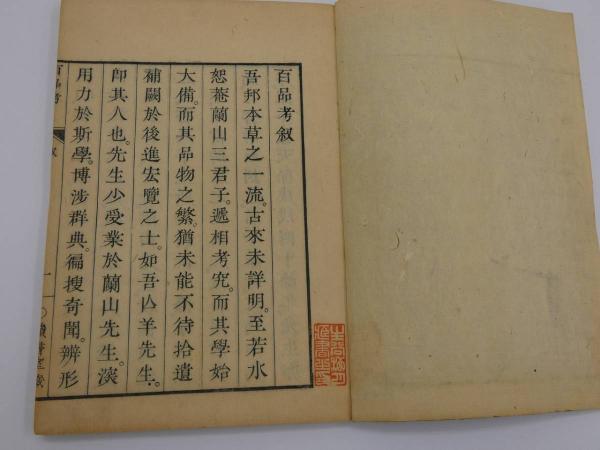 百品考叙
吾邦本草之一流。古來未詳明。至若水
恕菴蘭山三君子。遞相考究。而其學始
大備。而其品物之繁。猶未能不待拾遺
補闕於後進宏覽之士。如吾亾羊先生。
卽其人也。先生少受業於蘭山先生。淡
用力於斯學。博涉群典。徧搜奇聞。辨形
百品考
叙
一